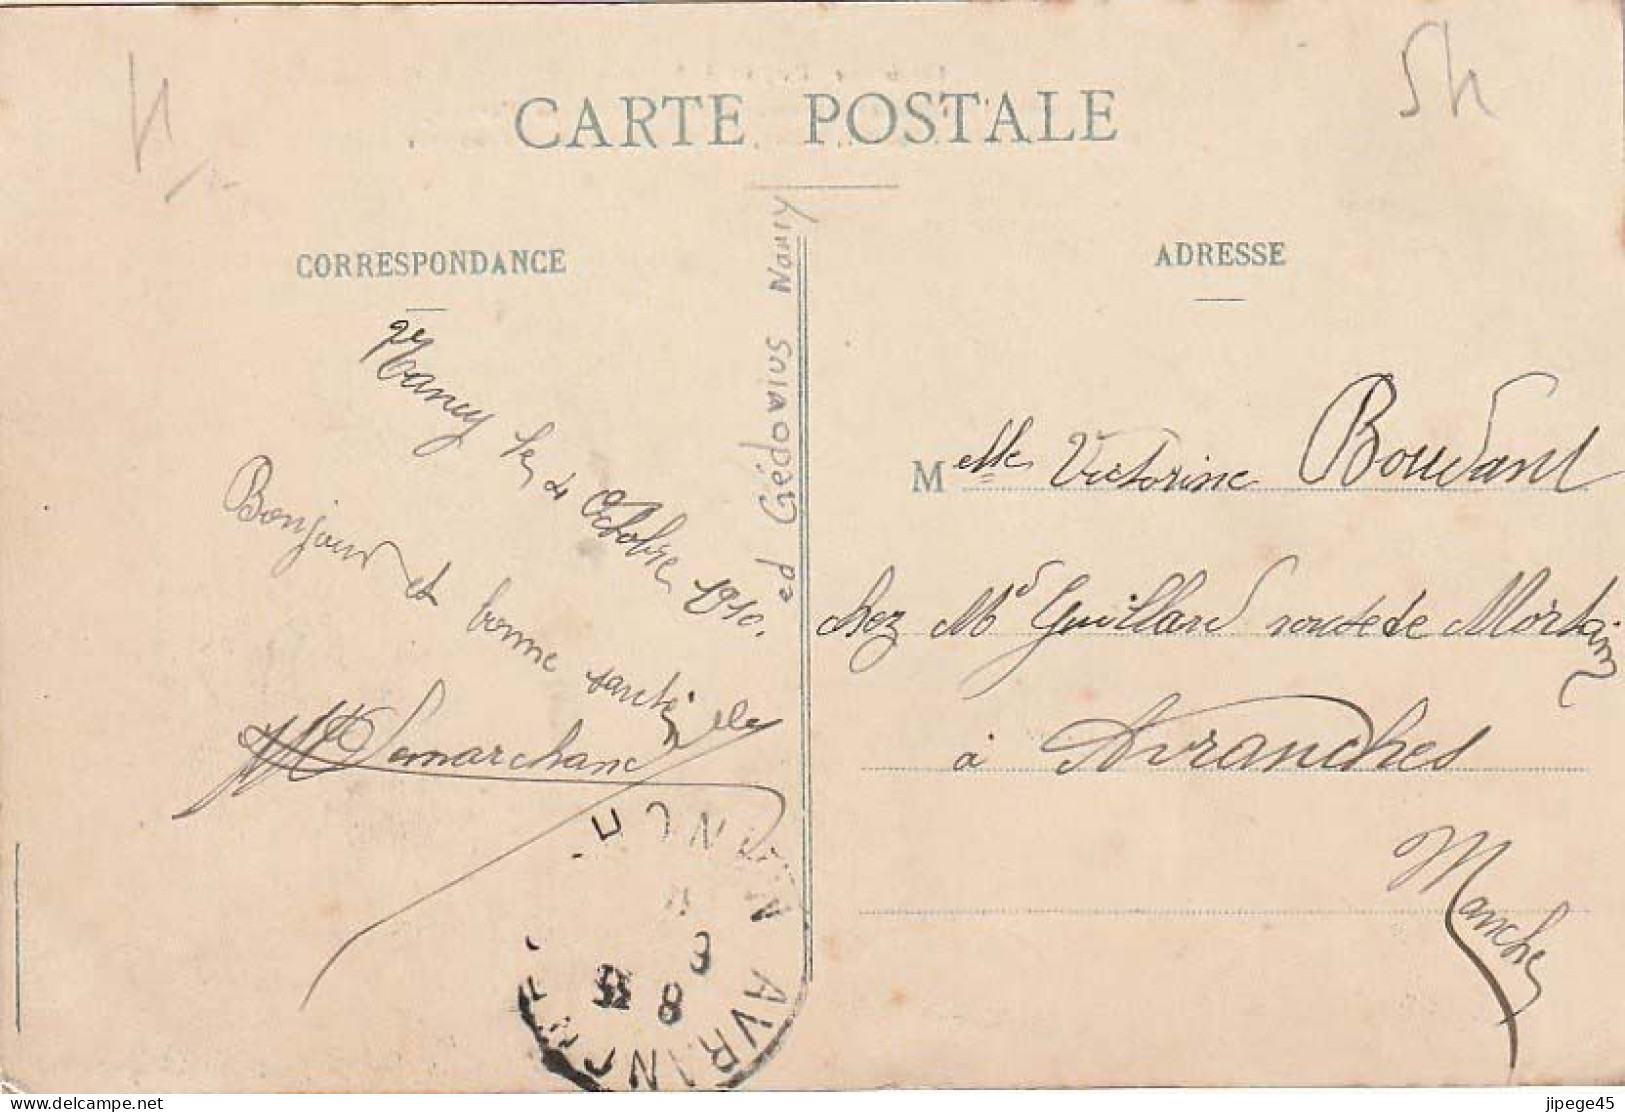 CARTE POSTALE
CORRESPONDANCE
ADRESSE
54
Nancy le 4 Octobre 1910.
Bonjour et bonne santé
Lemarchand
ed Gédovius Nancy
Melle Victorine Boudant
chez Md Guillard route de Mortain
à Avranches
Manche
AVRANCHES
MANCHE
8
delcampe.net
jipege45